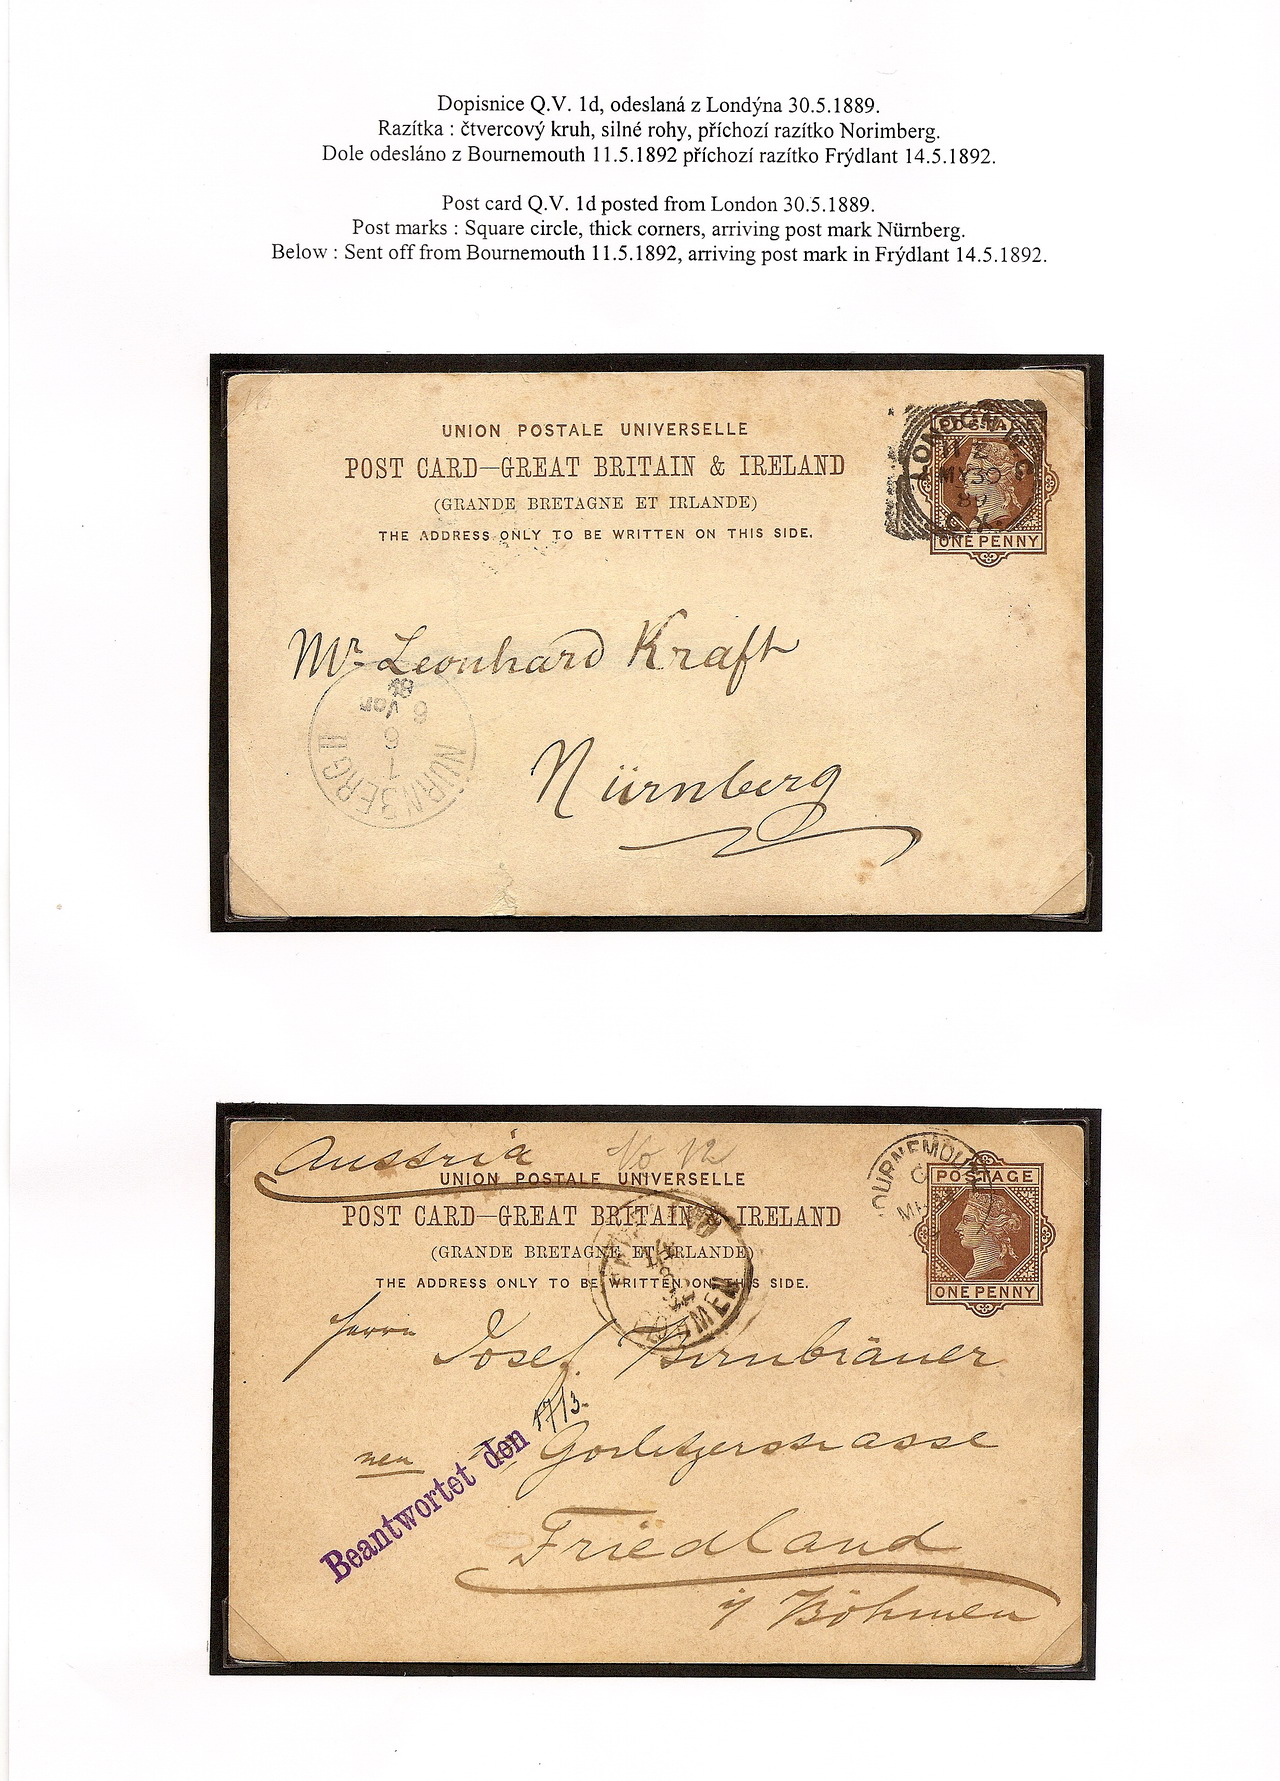 Dopisnice Q.V. 1d, odeslaná z Londýna 30.5.1889.
Razítka : čtvercový kruh, silné rohy, příchozí razítko Norimberg.
Dole odesláno z Bournemouth 11.5.1892 příchozí razítko Frýdlant 14.5.1892.
Post card Q.V. 1d posted from London 30.5.1889.
Post marks : Square circle, thick corners, arriving post mark Nürnberg.
Below : Sent off from Bournemouth 11.5.1892, arriving post mark in Frýdlant 14.5.1892.
UNION POSTALE UNIVERSELLE
POST CARD—GREAT BRITAIN & IRELAND
(GRANDE BRETAGNE ET IRLANDE)
THE ADDRESS ONLY TO BE WRITTEN ON THIS SIDE.
POSTAGE
LONDON
MY 30
89
ONE PENNY
Mr. Leonhard Kraft
NÜRNBERG II
Nürnberg
Austria
UNION POSTALE UNIVERSELLE
POST CARD—GREAT BRITAIN & IRELAND
(GRANDE BRETAGNE ET IRLANDE)
THE ADDRESS ONLY TO BE WRITTEN ON THIS SIDE.
BOURNEMOUTH
POSTAGE
ONE PENNY
BÖHMEN
Herrn
Josef Birnbräuer
neu Görlitzerstrasse
Beantwortet den
Friedland
i/ Böhmen